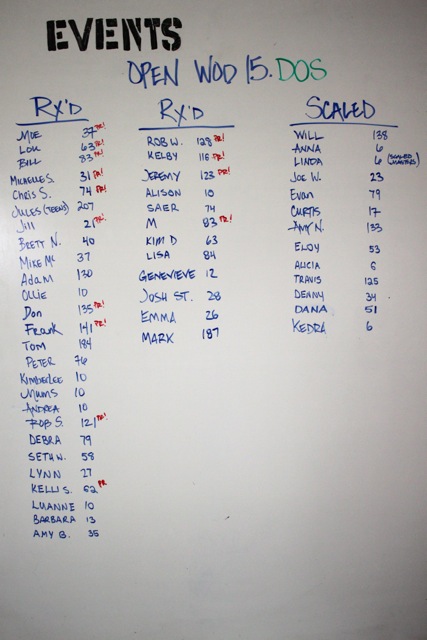 EVENTS
OPEN WOD 15.DOS
RX'D
MOE 37 PR!
LOU 63 PR!
BILL 83 PR!
MICHELLE S. 31 PR!
CHRIS S. 74 PR!
JULES (TEEN) 207
Jill 21 PR!
BRETT N. 40
MIKE MC 37
Adam 130
Ollie 10
Don 135 PR!
Frank 141 PR!
TOM 184
PETER 76
KIMBERLEE 10
MUMS 10
ANDREA 10
ROB S. 121 PR!
DEBRA 79
SETH N. 58
LYNN 27
KELLI S. 62 PR
LUANNE 10
BARBARA 13
AMY B. 35
RX'D
ROB W. 128 PR!
KELBY 116 PR!
JEREMY 123 PR!
ALISON 10
SAER 74
M 83 PR!
KIM D 63
LISA 84
GENEVIEVE 12
JOSH ST. 28
EMMA 26
MARK 187
SCALED
WILL 138
ANNA 6
LINDA 6 (SCALED MASTERS)
JOE W. 23
Evan 79
CURTIS 17
AMY N. 133
ELOY 53
ALICIA 6
TRAVIS 125
DENNY 34
DANA 51
KEDRA 6